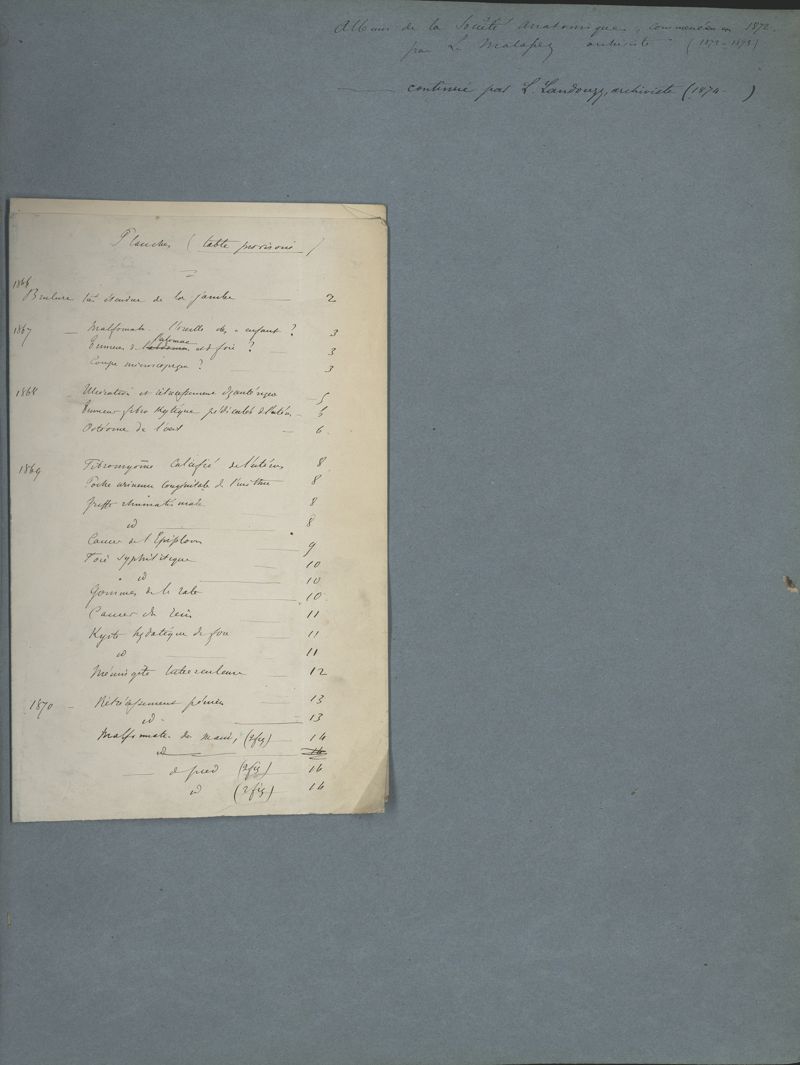 Album de la Société anatomique, commencé en 1872
par L. Malassez archiviste (1872-1873)
continué par L. Landouzy, archiviste (1874- )
Planches (table provisoire)
1866
Brulure de la jambe 2
1867 - Malformat. l'oreille enfant ? 3
Tumeur de l'abdomen et d foie ? 3
Coupe microscopique ? 3
1868 Ulcération et 5
Tumeur fibro kystique pédiculée de l'utérus - 5
Ostéome de l'oeil - 6
1869 Fibromyome calcifié de l'utérus 8
Poche urineuse congénitale de l'urèthre 8
Greffe 8
id 8
Cancer de l'Epiploon 9
Foie syphilitique 10
id 10
Gommes de la rate 10
Cancer du rein 11
Kyste hydatique du foie 11
id 11
Méningite tuberculeuse 12
1870 - Rétrécissement 13
id 13
Malformation des mains, (2 fig) 14
id 14
d pied (2 fig) 14
id (2 fig) 14